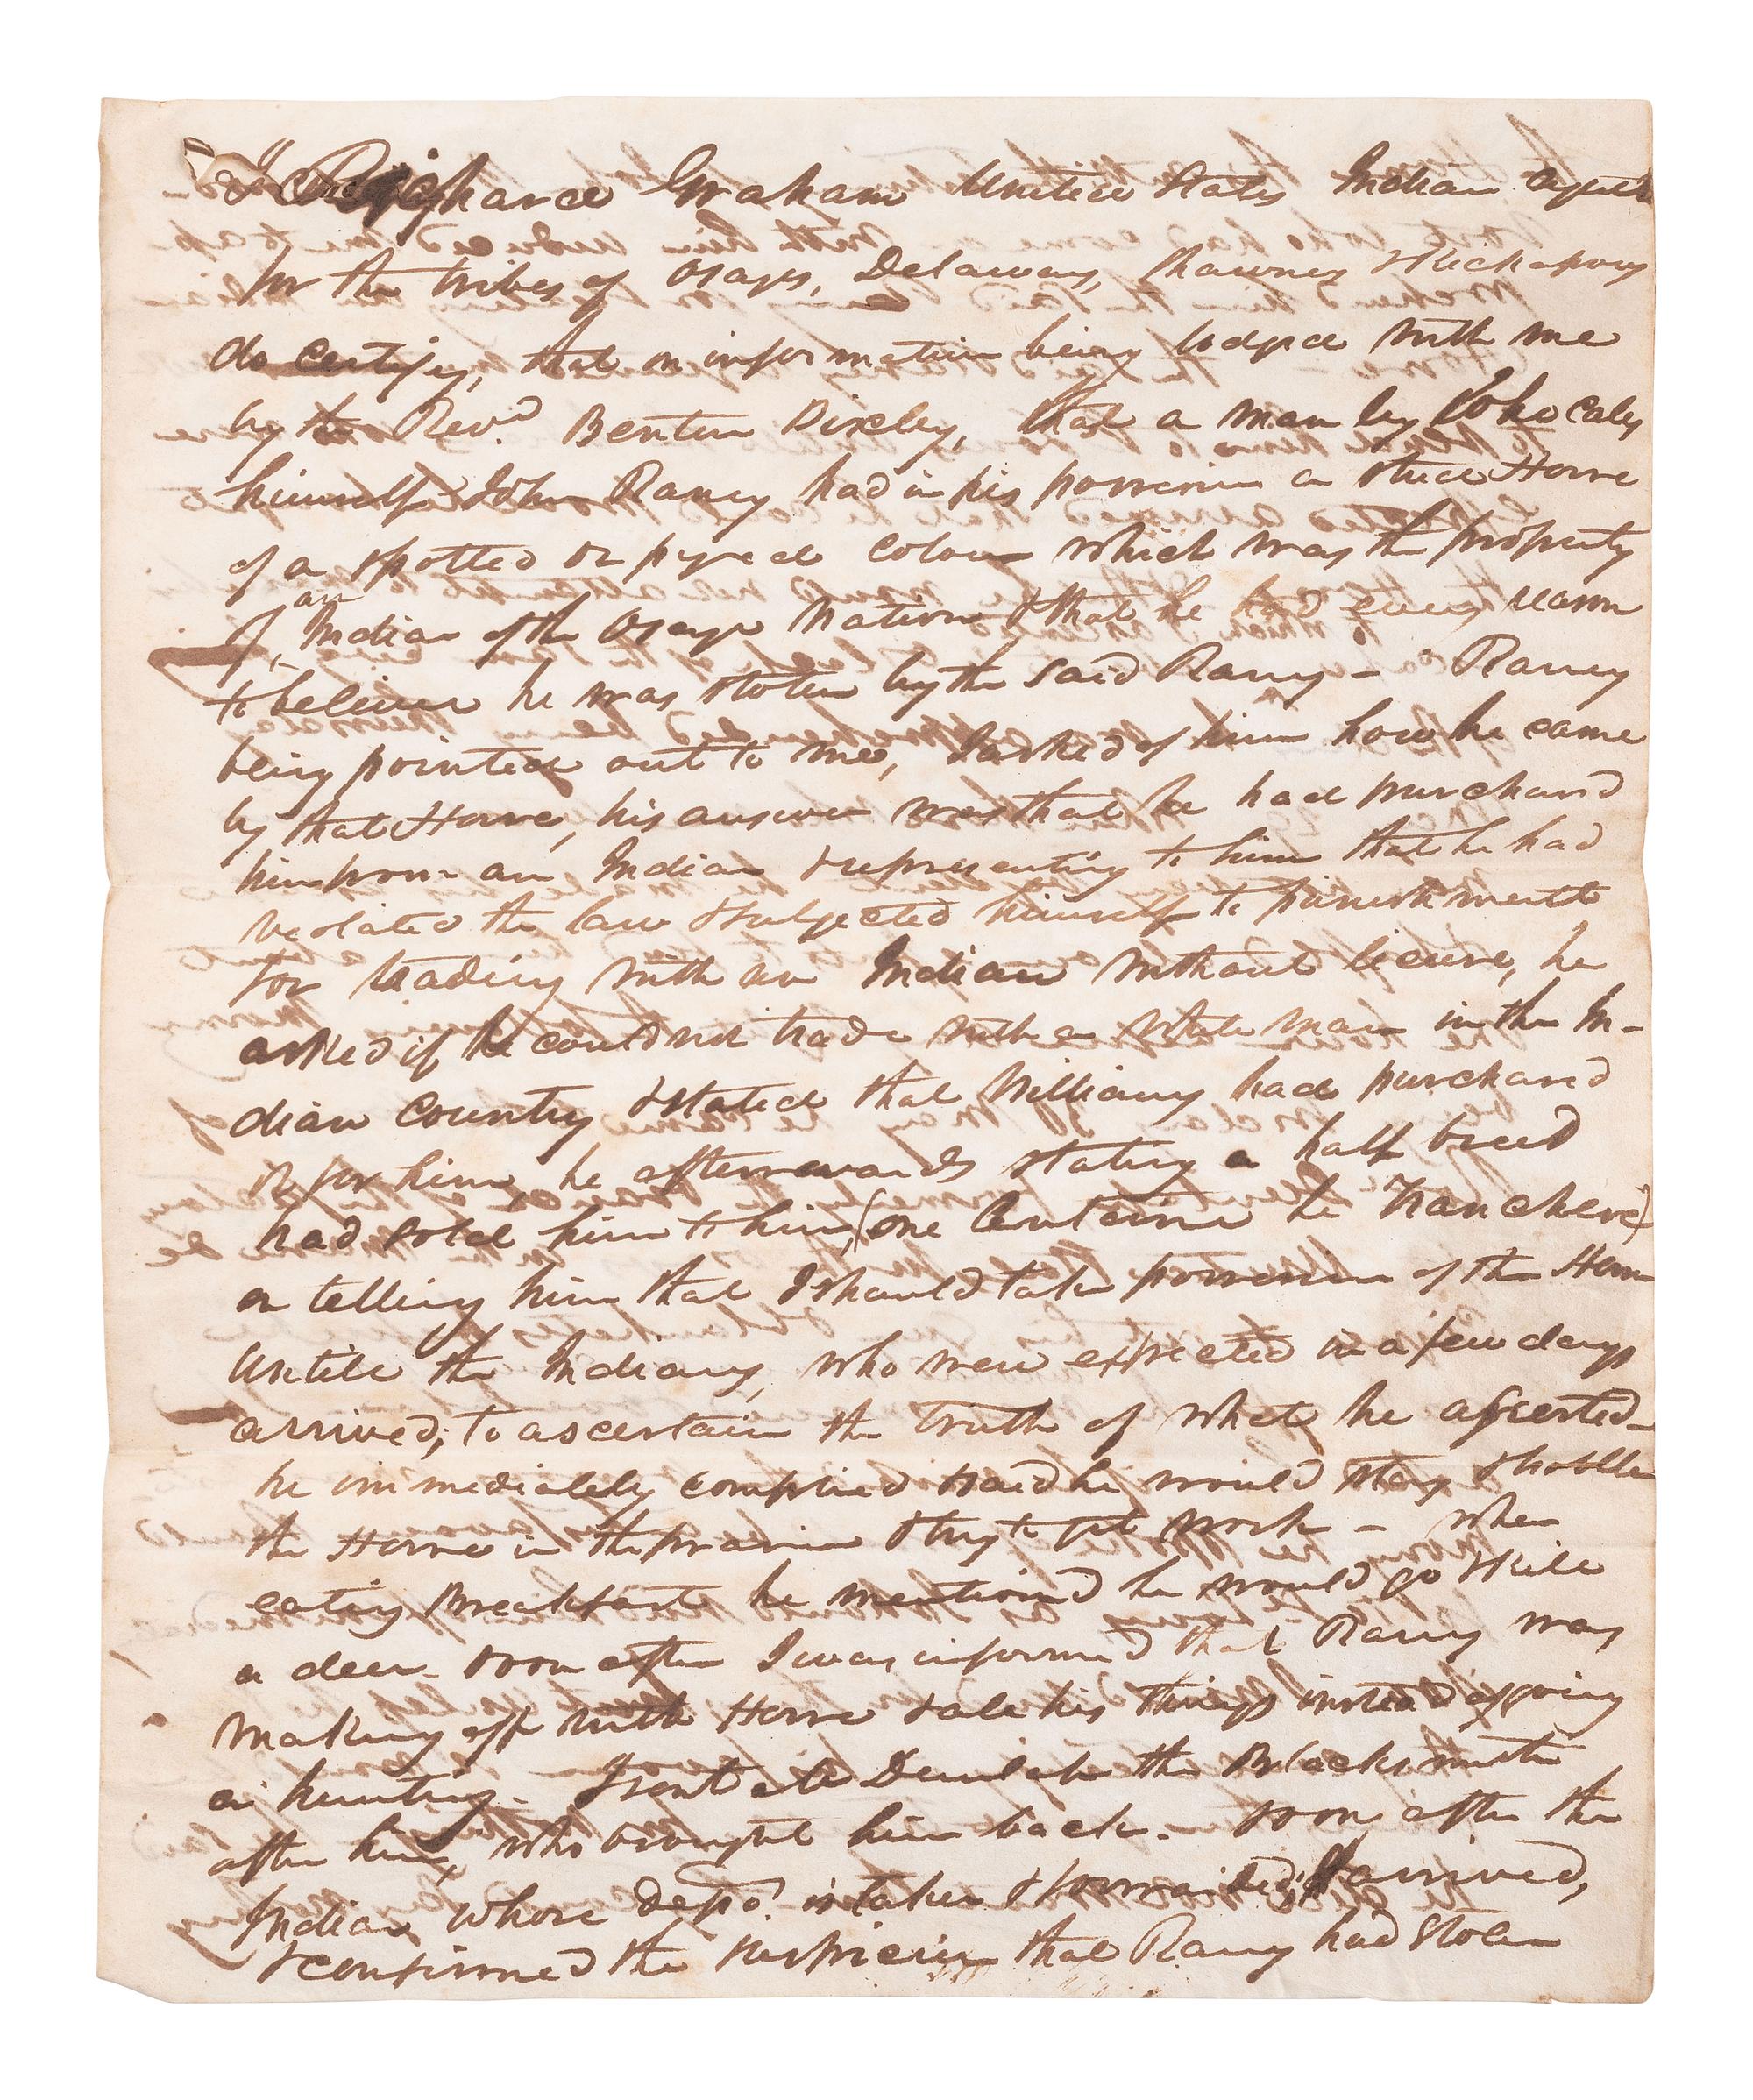 I Richard Graham United States Indian Agent
for the tribes of Osages, Delaways, Shawneys & Kickapoos
do certify, that on information being lodged with me
by the Revd. Benton Pixley, that a man by who calls
himself John Raney had in his possession a stud Horse
of a spotted or pyed colour which was the property
of an Indian of the Osage Nation & that he had every reason
to believe he was stolen by the said Raney - Raney
being pointed out to me, I asked of him how he came
by that Horse, his answer was that he had purchased
him from an Indian & representing to him that he had
violated the law & subjected himself to punishment
for trading with an Indian without licence, he
asked if he could not trade with a white man in the In-
dian Country & stated that Williams had purchased
it for him, he afterwards stating a half breed
had sold him to him, (one Antoine le
on telling him that I should take possession of the Horse
until the Indians, who were expected in a few days
arrived, to ascertain the truth of what he asserted -
he immediately complied & said he would stay & hobble
the Horse in the prarie & try to get work - when
eating Breakfast he mentioned he would go & kill
a deer - soon after I was informed that Raney was
making off with Horse & all his things instead of going
a hunting - I sent the Blacksmith
after him, who brought him back. soon after the
Indian whose depo. is taken & forwarded, arrived,
& confirmed the suspicion that Raney had stolen